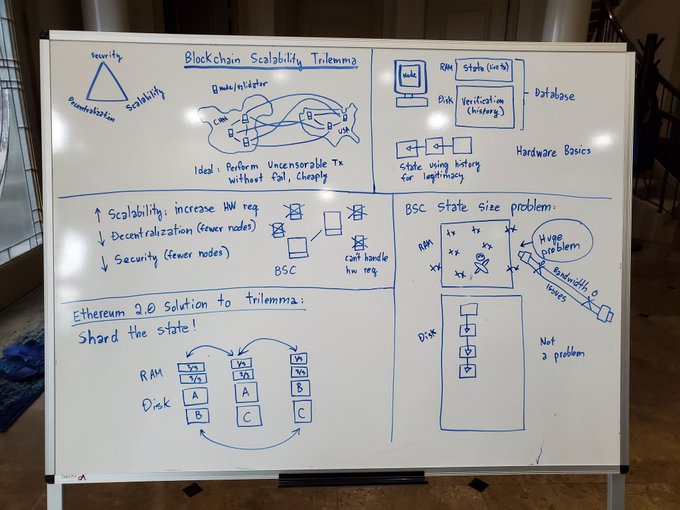 Blockchain Scalability Trilemma
Security
Decentralization
Scalability
node/validator
CHN
USA
Ideal: Perform Uncensorable Tx
without fail, Cheaply
Node
RAM
State (live tx)
Disk
Verification
(history)
Database
Hardware Basics
State using history
for legitimacy
↑ Scalability: increase HW req
↓ Decentralization (fewer nodes)
↓ Security (fewer nodes)
BSC
can't handle
hw req
BSC State Size problem:
RAM
xx
xx
xx
xx
xx
xx
xx
xx
xx
Huge
problem
Bandwidth
issues
Disk
Not
a problem
Ethereum 2.0 Solution to trilemma:
Shard the state!
RAM
1/3
1/3
2/3
Disk
A
A
B
B
C
C